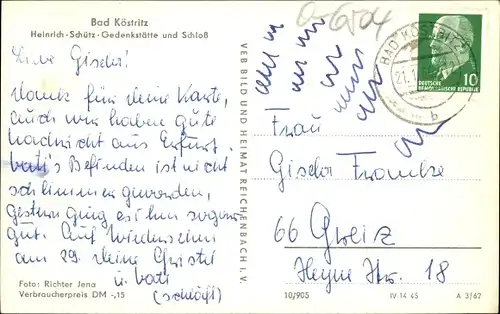 O-6504
Bad Köstritz
Heinrich-Schütz-Gedenkstätte und Schloß
Liebe Gisela!
Dank für deine Karte,
auch wir haben gute
Nachricht aus Erfurt.
Vatis Befinden ist nicht
schlimmer geworden,
gestern ging es ihm sogar
gut. Auf Wiedersehen
am 29. deine Christel
u. Vati
(schläft)
Foto: Richter Jena
Verbraucherpreis DM -,15
VEB BILD UND HEIMAT REICHENBACH I. V.
BAD KÖSTRITZ
21.1
b
10
DEUTSCHE
DEMOKRATISCHE REPUBLIK
Frau
Gisela Franke
66 Greiz
Heyne Str. 18
10/905
IV-14-45
A 3/67